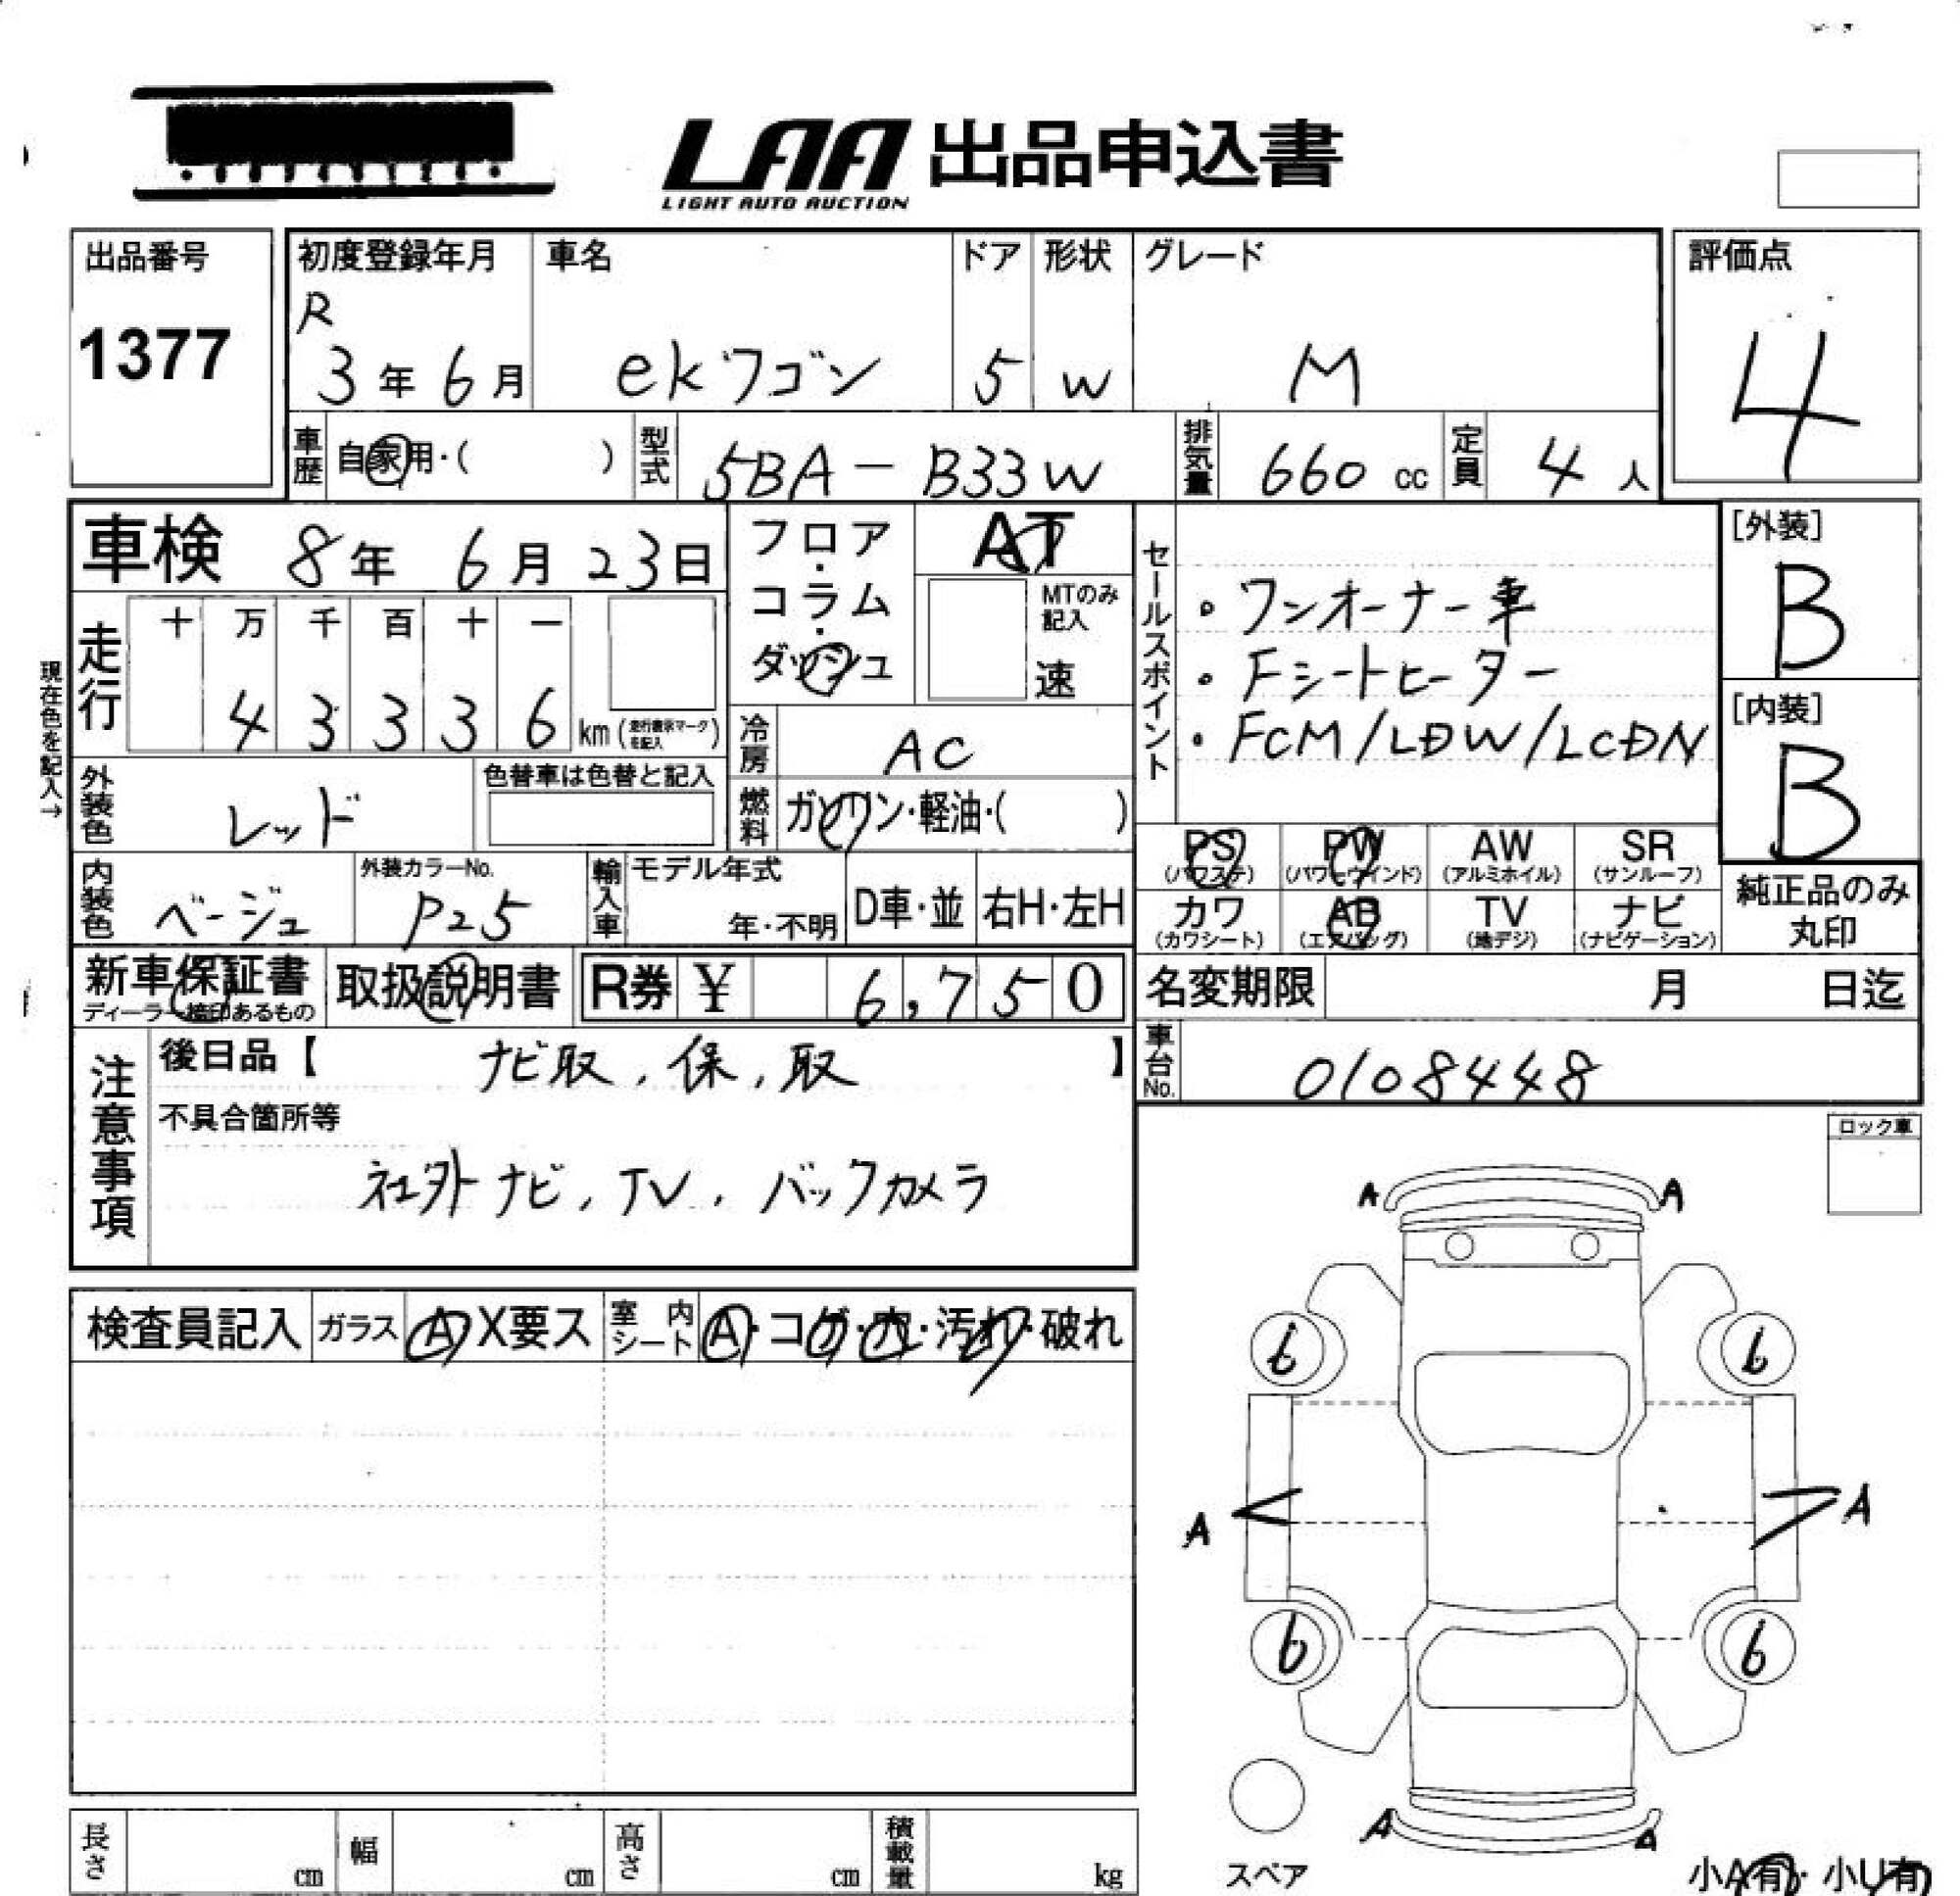 LAA 出品申込書
LIGHT AUTO AUCTION
出品番号
1377
初度登録年月
R
3年6月
車名
ekワゴン
ドア
5
形状
W
グレード
M
評価点
4
車歴
自家用・( )
型式
5BA-B33W
排気量
660 cc
定員
4人
車検 8年 6月 23日
フロア・コラム・ダッシュ
AT
MTのみ記入
速
走行
十 万 千 百 十 一
4 3 3 3 6 km (走行表示マークを記入)
現在色を記入→
冷房
AC
燃料
ガソリン・軽油・( )
外装色
レッド
色替車は色替と記入
内装色
ベージュ
外装カラーNo.
P25
輸入車
モデル年式
年・不明
D車・並
右H・左H
セールスポイント
・ワンオーナー車
・Fシートヒーター
・FCM/LDW/LCDN
[外装]
B
[内装]
B
PS
(パワステ)
PW
(パワーウインド)
AW
(アルミホイル)
SR
(サンルーフ)
カワ
(カワシート)
AB
(エアバッグ)
TV
(地デジ)
ナビ
(ナビゲーション)
純正品のみ
丸印
新車保証書
ディーラー捺印あるもの
取扱説明書
R券 ¥ 6,750
名変期限 月 日迄
車台No.
0108448
注意事項
後日品【 ナビ取, 保, 取 】
不具合箇所等
社外ナビ, TV, バックカメラ
ロック車
検査員記入
ガラス
A X要ス
室内シート
A・コゲ・穴・汚れ・破れ
A A
6 6
A A
6 6
A A
スペア
小A有・小U有
長さ cm
幅 cm
高さ cm
積載量 kg